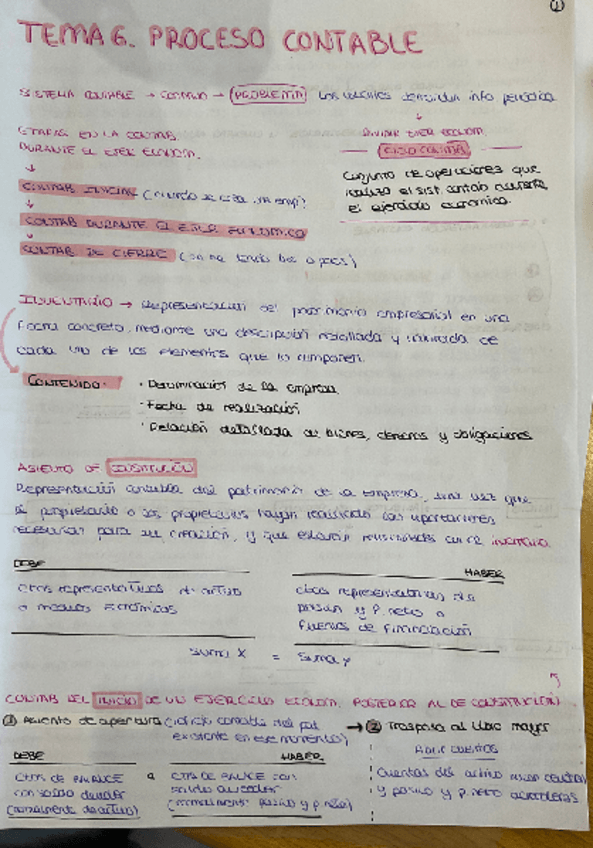 1
TEMA 6. PROCESO CONTABLE
SISTEMA CONTABLE → CONTINUO → PROBLEMA los usuarios info periódica
↓
ETAPAS EN LA CONTAB
DURANTE EL EJER ECONÓM.
CICLO CONTAB
Conjunto de operaciones que
realiza el sist. contab durante
el ejercicio económico.
↓
CONTAB INICIAL (cuando se crea emp)
↓
CONTAB DURANTE EL EJER ECONÓMICO
↓
CONTAB DE CIERRE
INVENTARIO → Representación del patrimonio empresarial en una
fecha concreta, mediante una descripción detallada y valorada de
cada uno de los elementos que lo componen.
CONTENIDO: · Denominación de la empresa
· Fecha de realización
· Relación detallada de bienes, derechos y obligaciones
ASIENTO DE CONSTITUCIÓN
Representación contable del patrimonio de la empresa, una vez que
el propietario o los propietarios hayan realizado las aportaciones
necesarias para su creación, y que estarán en el inventario
DEBE
HABER
ctas representativas de activo
o medios económicos
ctas representativas de
pasivo y P. neto o
fuentes de financiación
suma x = suma y
CONTAB DEL INICIO DE UN EJERCICIO ECONÓM. POSTERIOR AL DE CONSTITUCIÓN
1 Asiento de apertura (reflejo contable del pat
existente en ese momento)
→ 2 Traspaso al libro mayor
Abrir cuentas
DEBE
HABER
Cuentas del activo
y pasivo y p. neto acreedoras
CTAS DE BALANCE
con saldo deudor
(normalmente de activo)
a
CTAS DE BALANCE con
saldo acreedor
(normalmente pasivo y p neto)